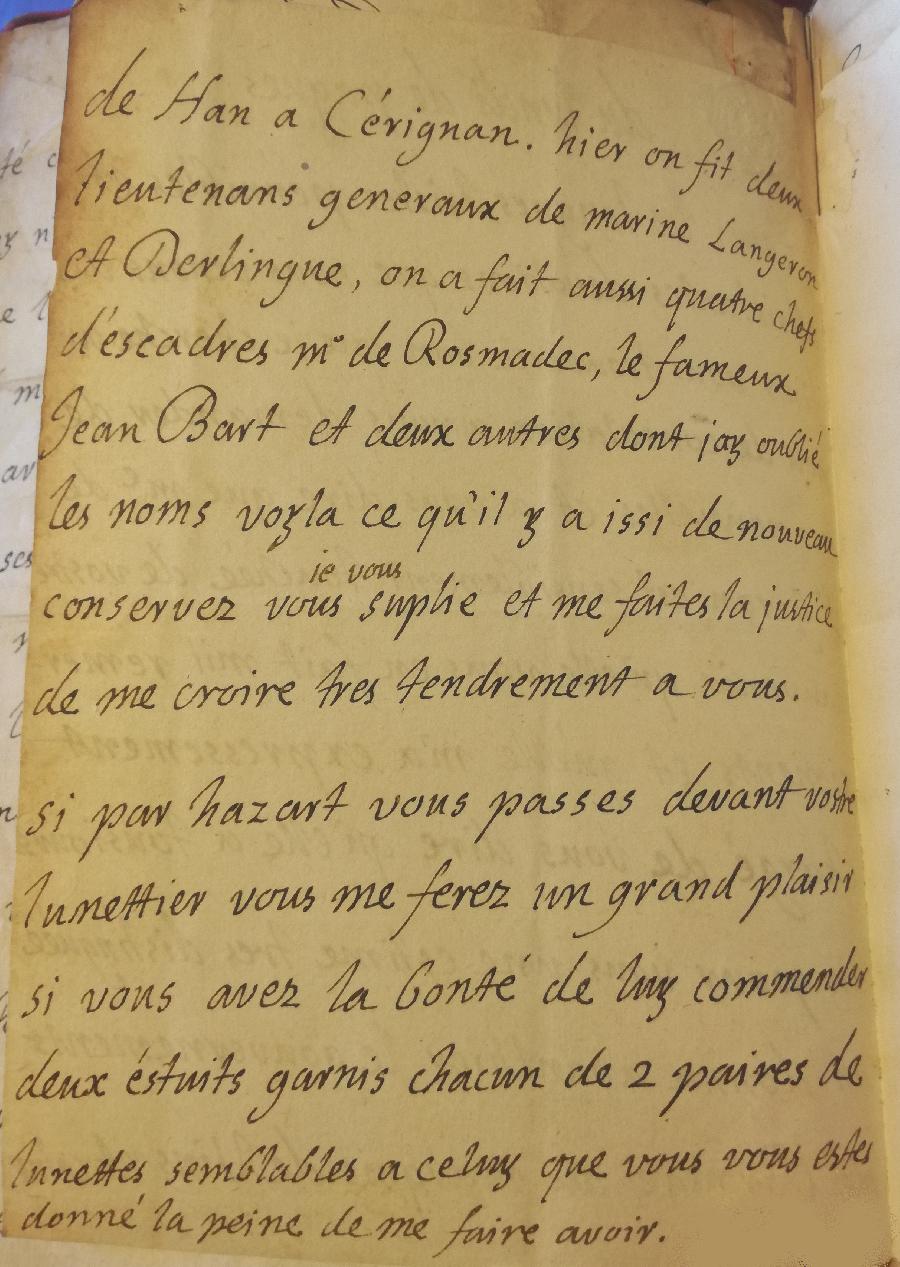 de Han a Cérignan. hier on fit deux
lieutenans generaux de marine Langeron
et Berlingue, on a fait aussi quatre chefs
d'éscadres mr de Rosmadec, le fameux
Jean Bart et deux autres dont jay oublié
les noms voyla ce qu'il y a issi de nouveau
je vous
conservez vous suplie et me faites la justice
de me croire tres tendrement a vous.
si par hazart vous passes devant vostre
lunettier vous me ferez un grand plaisir
si vous avez la bonté de luy commender
deux éstuits garnis chacun de 2 paires de
lunettes semblables a celuy que vous vous estes
donné la peine de me faire avoir.